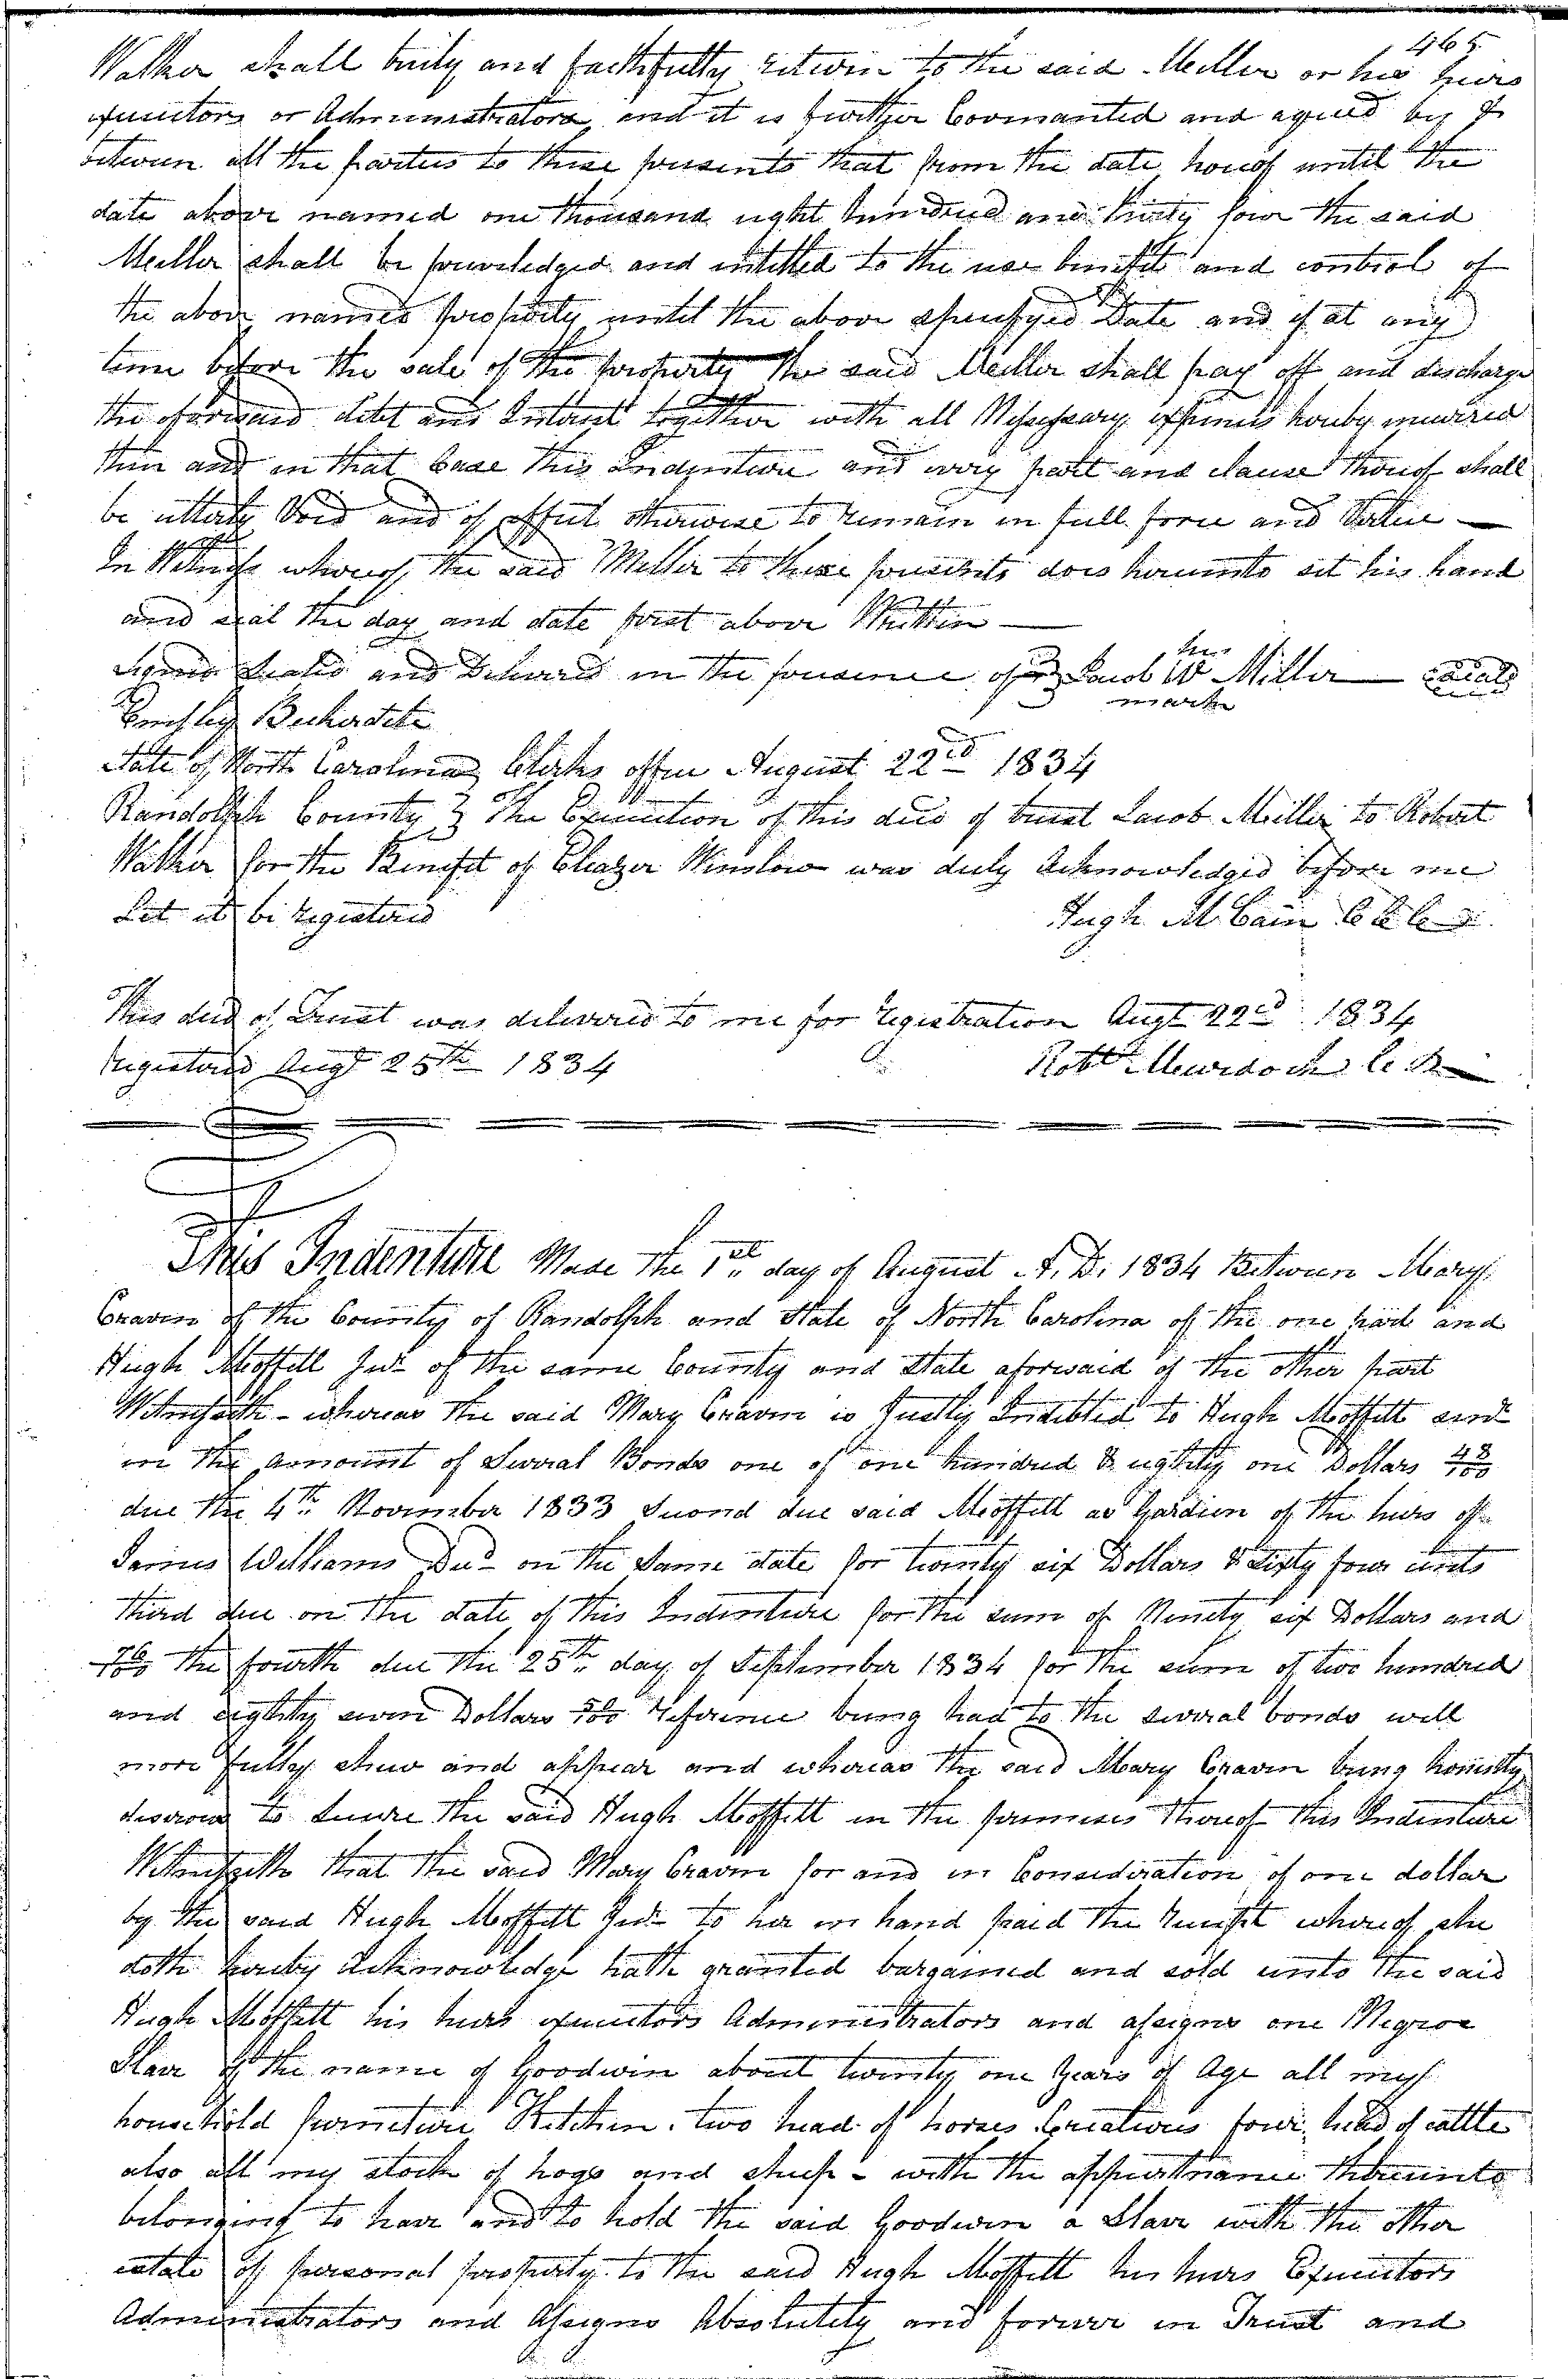 465
Walker shall truly and faithfully return to the said Miller or his heirs
executors or Administrators and it is further Covenanted and agreed by &
between all the parties to these presents that from the date hereof until the
date above named one thousand eight hundred and thirty four the said
Miller shall be priviledged and intitled to the use benefit and control of
the above named property until the above specifyed Date and if at any
time before the sale of the property the said Miller shall pay off and discharge
the aforesaid debt and Intrest together with all Nessessary expenses hereby incurred
then and in that Case this Indenture and every part and clause thereof shall
be utterly Void and of effect otherwise to remain in full force and Virtue —
In Witness whereof the said Miller to these presents does hereunto set his hand
and seal the day and date first above Written —
Signed Sealed and Delivered in the presence of } Jacob his W mark Miller — Seal
Bucherdite
State of North Carolina } Clerks office August 22nd 1834
Randolph County } The Execution of this deed of trust Jacob Miller to Robert
Walker for the Benefit of Eleazer Winslow was duly Acknowledged before me
Let it be registered Hugh McCain C C C
This deed of Trust was delivered to me for registration Augt 22d 1834
registered Augt 25th 1834 Robt Murdoch C R
This Indenture Made the 1st day of August A. D. 1834 Between Mary
Craven of the County of Randolph and State of North Carolina of the one part and
Hugh Moffitt Jud of the same County and State aforesaid of the other part
Witnesseth - whereas the said Mary Craven is Justly Indebted to Hugh Moffitt
in the amount of Several Bonds one of one hundred & eighty one Dollars 48/100
due the 4th November 1833 Second due said Moffitt as Gardien of the heirs of
Williams Decd on the Same date for twenty six Dollars & sixty four cents
third due on the date of this Indenture for the sum of Ninety six Dollars and
76/100 the fourth due the 25th day of September 1834 for the sum of two hundred
and eighty seven Dollars 50/100 referrence being had to the several bonds will
more fully shew and appear and whereas the said Mary Craven being honestly
desirous to secure the said Hugh Moffitt in the premises thereof this Indenture
Witnesseth that the said Mary Craven for and in Consideration of one dollar
by the said Hugh Moffitt Jud to her in hand paid the receipt whereof she
doth hereby Acknowledge hath granted bargained and sold unto the said
Hugh Moffitt his heirs executors Administrators and assigns one Negroe
Slave of the name of Goodwin about twenty one Years of Age all my
household furniture Kitchen. two head of horses Creatures four head of cattle
also all my stock of hogs and sheep - with the appurtnance thereunto
belonging to have and to hold the said Goodwin a Slave with the other
estate of personal property to the said Hugh Moffitt his heirs Executors
Administrators and Assigns Absolutely and forever in Trust and